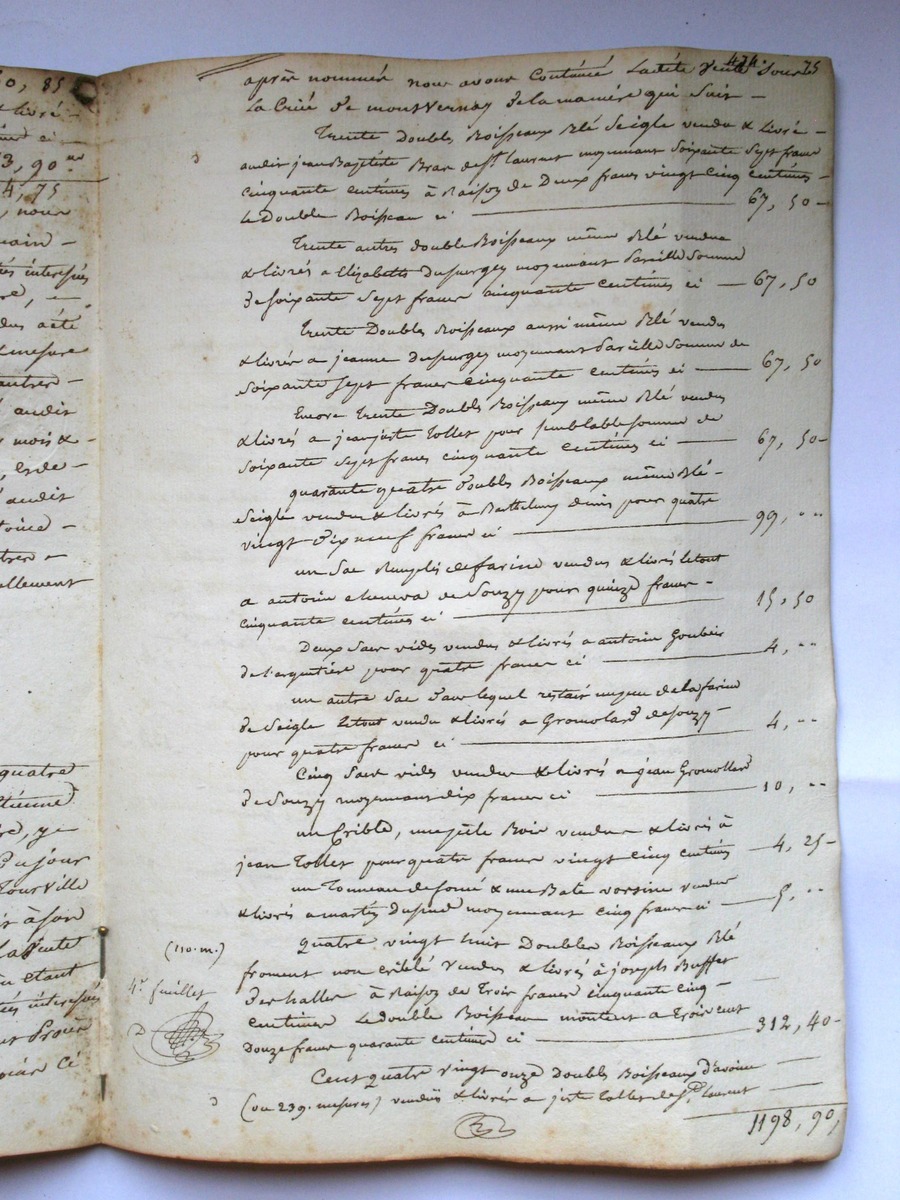 0, 85
& livré
3, 90
4, 75
, nous
main -
intéressés
mesure
audit
mois & -
audit
quatre
étienne
Du jour
Tourville
à son
la vente
étant
intéressés
474. 75
après nommés nous avons Continué La dite Vente Sous
La Criée de montVernay de la maniére qui Suit -
Trente Doubles Boisseaux Blé Seigle vendu & Livré -
audit jean Baptiste Bras de St. laurent moyennant Soixante Sept francs
cinquante centimes à Raison de Deux francs vingt Cinq centimes -
Le Double Boisseau ci 67, 50 -
Trente autres doubles Boisseaux même Blé vendus
& livrés a Elizabeth Dupurgey moyennant Pareille Somme
De soixante Sept francs cinquante Centimes ci 67, 50
Trente Doubles Boisseaux aussi même Blé vendus
& livrés a jeanne Dupurgey moyennant Pareille Somme de
Soixante Sept francs cinquante centimes ci 67, 50
Encore Trente Doubles Boisseaux même Blé vendus
& livrés a jean juste Tollet pour semblable somme de
Soixante Sept francs cinquante Centimes ci 67, 50 -
quarante quatre Doubles Boisseaux même Blé -
Seigle vendus & livrés à Barthelemy Denis pour quatre
vingt Dix neuf francs ci 99, " "
un Sac Remplis de farine vendus & livrés le tout
a antoine chenava de Souzy pour quinze francs -
cinquante centimes ci 15, 50
Deux Sacs vides vendus & livrés a antoine Goubier
de l'argentière pour quatre francs ci 4, " "
un autre Sac Dans lequel restait un peu de la farine
de Seigle le tout vendu & livrés a Gromolard de souzy
pour quatre francs ci 4, " "
Cinq Sacs vides vendus & livrés a jean Gromollard
de Souzy moyennant dix francs ci 10, " "
un Crible, une pèle Bois vendus & livrés à
jean Tollet pour quatre francs vingt Cinq centimes 4, 25 -
un Tonneau & une vendus
& livrés a moyennant cinq francs ci 5, " "
Quatre vingt huit Doubles Boisseaux Blé
froment non criblé Vendus & livrés à joseph Buffet
des halles à Raison de Trois francs cinquante cinq -
centimes Le double Boisseau montent a Trois cent
Douze francs quarante centimes ci 312, 40 -
Cent quatre vingt onze Doubles Boisseaux d'avoine
(ou 239. mesures) vendus & livrés a juste Tollet de St. laurent
1198, 90,
(110. m.)
4e. feuillet